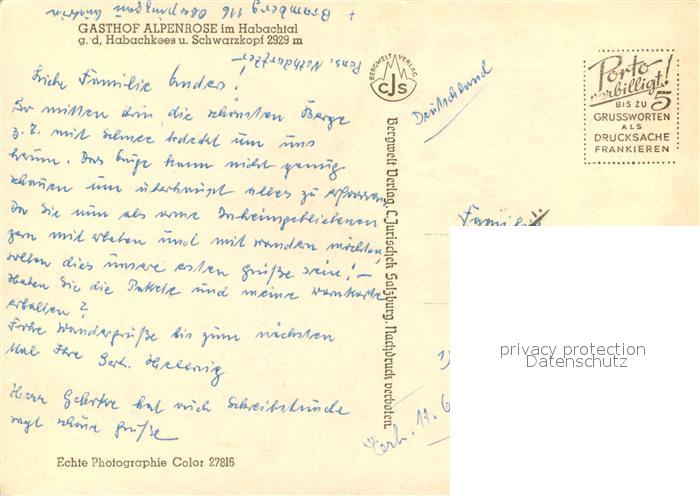 + Bramberg 116 Oberpinzgau
GASTHOF ALPENROSE im Habachtal
g. d. Habachkees u. Schwarzkopf 2929 m
Pens.
Liebe Familie Anders!
So mitten drin, die schönsten Berge
z. T. mit Schnee bedeckt um uns
herum. Das Auge kann nicht genug
schauen um überhaupt alles zu erfassen.
Da Sie nun als arme Daheimgebliebenen
gern mit erleben und mit wandern möchten,
sollen dies unsere ersten Grüße sein! –
Haben Sie die Pakete und meine
erhalten?
Frohe Wandergrüße bis zum nächsten
Mal Ihre Gert. Hellwig
Herr Gehrke hat auch Schreibstunde
sagt schöne Grüße
Echte Photographie Color 27816
BERGWELT VERLAG
CJS
Bergwelt Verlag, C. Jurischek Salzburg. Nachdruck verboten.
Deutschland
Porto
verbilligt!
BIS ZU 5
GRUSSWORTEN
ALS
DRUCKSACHE
FRANKIEREN
Familie
privacy protection
Datenschutz